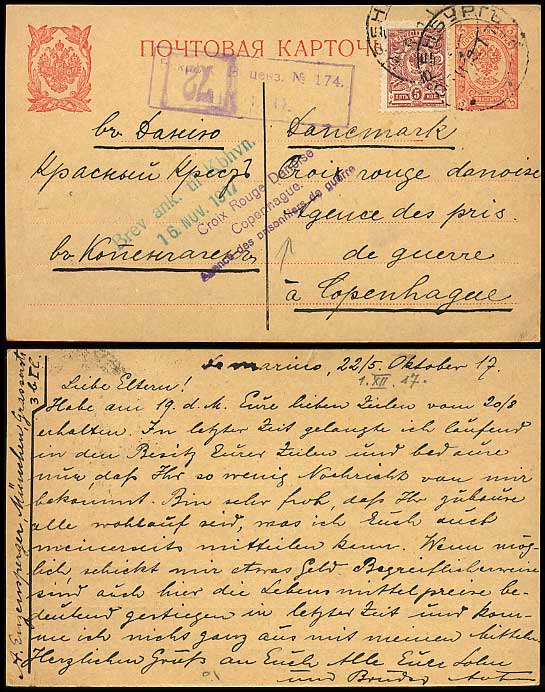 ПОЧТОВАЯ КАРТОЧКА
ценз. № 174.
ПЯТЬ 5 КОП
въ Данію
Красный Крестъ
въ Копенгагенъ
Danemark
Croix rouge danoise
Agence des pris.
de guerre
à Copenhague
Brev ank. til Kbhvn.
16. NOV. 1917
Croix Rouge Danoise
Copenhague.
Agence des prisonniers de guerre
22/5. Oktober 17.
1. XII. 17.
Liebe Eltern!
Habe am 19. d. M. Eure lieben Zeilen vom 20/8
erhalten. In letzter Zeit gelangte ich laufend
in den Besitz Eurer Zeilen und bedaure
nur, daß Ihr so wenig Nachricht von mir
bekommt. Bin sehr froh, daß Ihr zuhause
alle wohlauf seid, was ich Euch auch
meinerseits mitteilen kann. Wenn mög-
lich, schickt mir etwas Geld. Begreiflicherweise
sind auch hier die Lebensmittelpreise be-
deutend gestiegen in letzter Zeit und kom-
me ich nicht ganz aus mit meinen Mitteln.
Herzlichen Gruß an Euch Alle Eure Sohn
und Bruder
München,